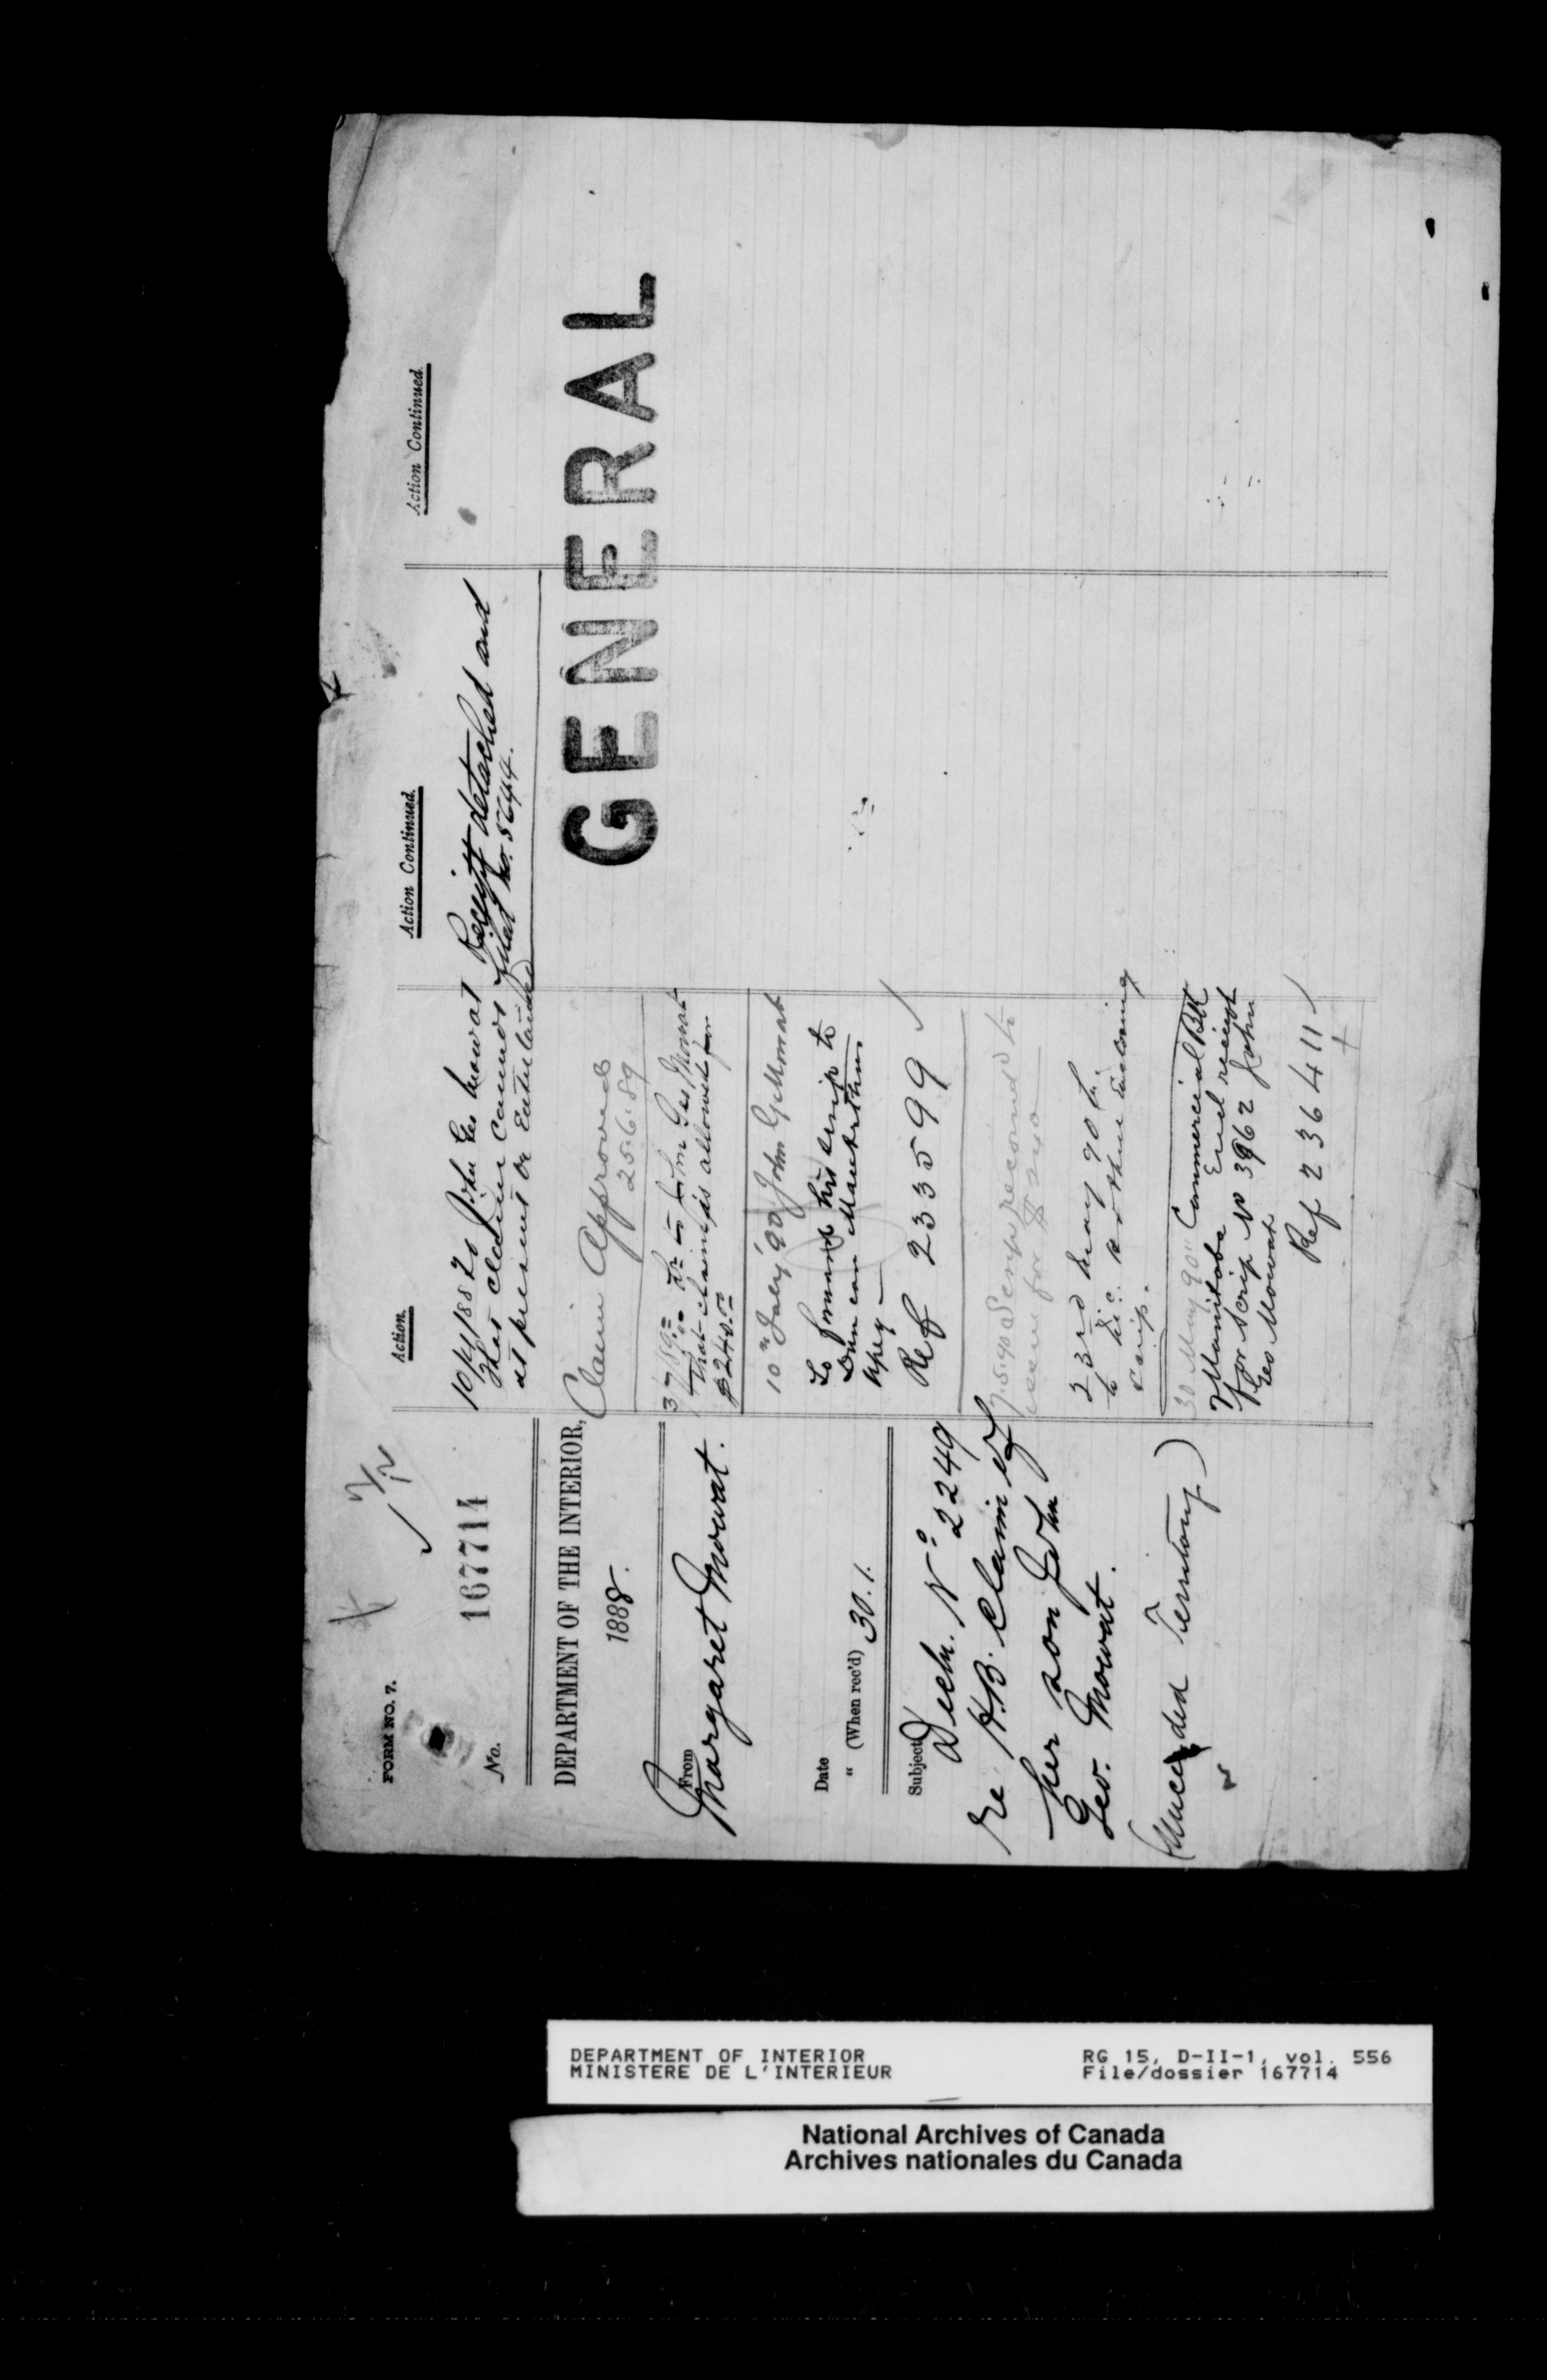 FORM NO. 7.
No. 167714
DEPARTMENT OF THE INTERIOR,
1888.
From
Margaret Mowat.
Date
" (When rec'd) 30.1.
Subject
Decln. No. 2249
re H.B. claim of
her son John
Geo. Mowat.
Territory)
Action.
10/4/88 To John Geo Mowat
that claim cannot
at present be entertained
Claim Approved
25.6.89
John Geo Mowat
that claim is allowed for
$240.00
10th July '90 John G. Mowat
To forward his scrip to
Duncan
Ref 233599
7.5.90 Scrip recomd to
issue for $240
23rd May 90
scrip.
30 May 90 Commercial Bk
Manitoba Encl receipt
for Scrip No 3962 John
Geo Mowat
Ref 236411
Action Continued.
Receipt detached and
filed
Action Continued.
GENERAL
DEPARTMENT OF INTERIOR
MINISTERE DE L'INTERIEUR
RG 15, D-II-1, vol. 556
File/dossier 167714
National Archives of Canada
Archives nationales du Canada